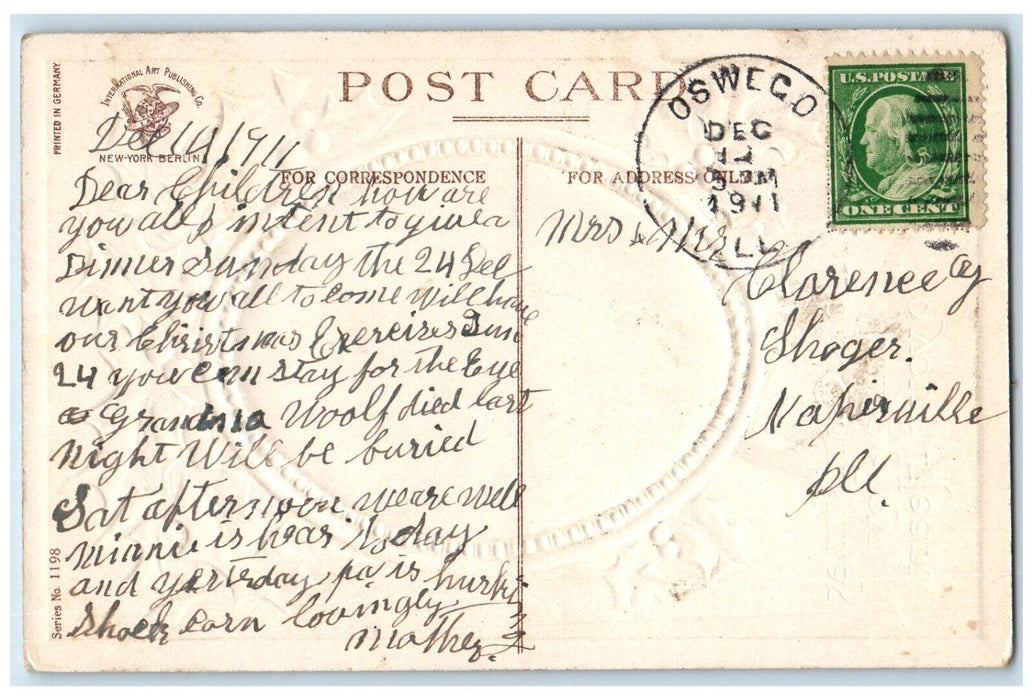 POST CARD
PRINTED IN GERMANY
INTERNATIONAL ART PUBLISHING CO.
NEW-YORK BERLIN
FOR CORRESPONDENCE
FOR ADDRESS ONLY
OSWEGO
DEC
1911
ILL.
U.S. POSTAGE
ONE CENT
Dec 1911
Dear Children how are
you all, intent to give a
Dinner Sunday the 24 Dec
want you all to Come Will have
our Christmas Exercizes Sun
24 you can stay for the Eve
Grandma Woolf died last
Night Will be buried
Sat afternoon we are well
Minnie is hear to day
and yesterday pa is husking
Shock Corn lovingly
Mother.
Mrs & Mr
Clarence
Shoger.
Naperville
Ill.
Series No. 1198